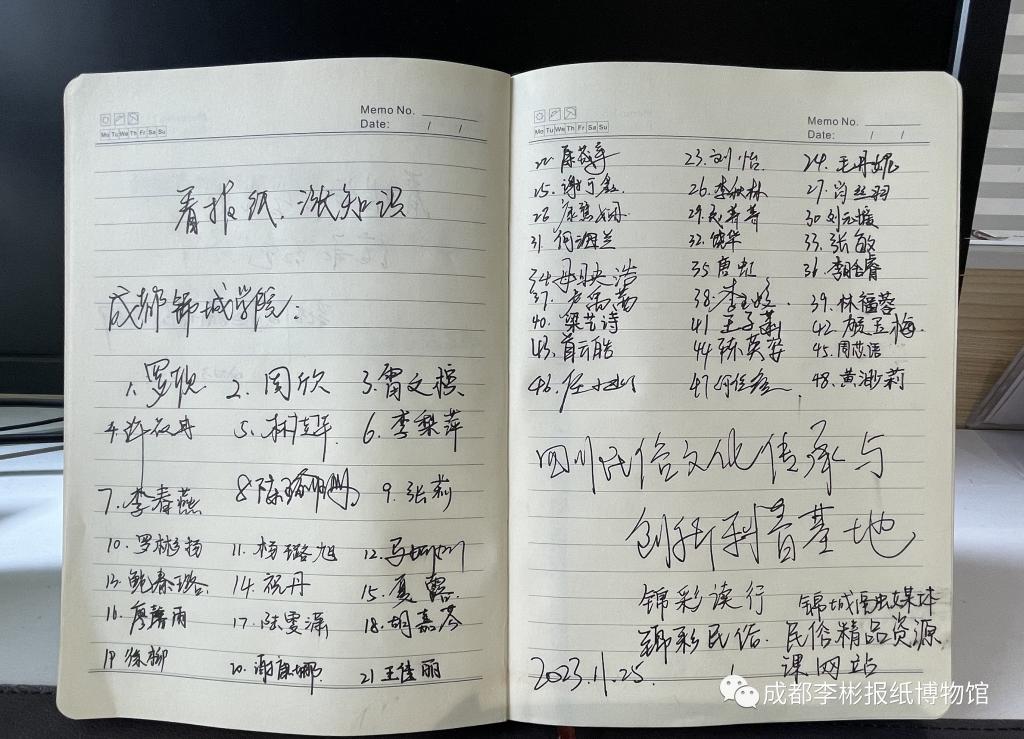 Memo No.
Date: / /
Mo Tu We Th Fr Sa Su
看报纸、涨知识
成都锦城学院：
1、罗敏 2、周欣 3、雷文横
4、许衣丹 5、林佳平 6、李梨萍
7、李春燕 8、陈 9、张莉
10、罗彬扬 11、杨璐旭 12、马
13、鲍春璐 14、祝丹 15、夏露
16、廖馨雨 17、陆雯潇 18、胡嘉芩
19、徐柳 20、谢康娜 21、王佳丽
Memo No.
Date: / /
Mo Tu We Th Fr Sa Su
22、 23、刘怡 24、毛丹妮
25、谢 26、李秋林 27、肖丝羽
28、 29、 30 刘元媛
31、何海兰 32、饶华 33、张敏
34、母央浩 35 唐虹 36、李
37、卢 38、李玉婷 39、林福蓉
40、梁艺诗 41、王子潇 42、殷玉梅
43、首云皓 44 陈英安 45、周芯语
46、任 47、何 48、黄渺莉
四川民俗文化传承与
创新科普基地
锦彩读行 锦城融媒体
锦彩民俗、民俗精品资源
课网站
2023.11.25.
成都李彬报纸博物馆